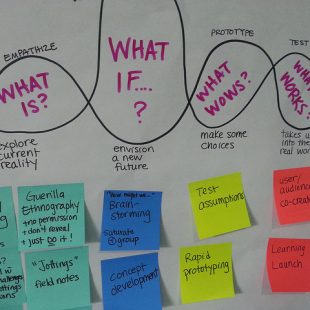 EMPATHIZE
PROTOTYPE
TEST
WHAT
IS?
WHAT
IF....
?
WHAT
WOWS?
WHAT
WORKS?
explore
current
reality
envision
a new
future.
make some
choices
takes us
into the
real wor
Guerilla
Ethnography
+no permission
+don't reveal
+just do it!
"How might we..."
Brain-
storming
Saturate
@group
Test
assumptions
user/
audience
co-crea
"Jottings"
field notes
Concept
development
Rapid
prototyping
Learning
Launch